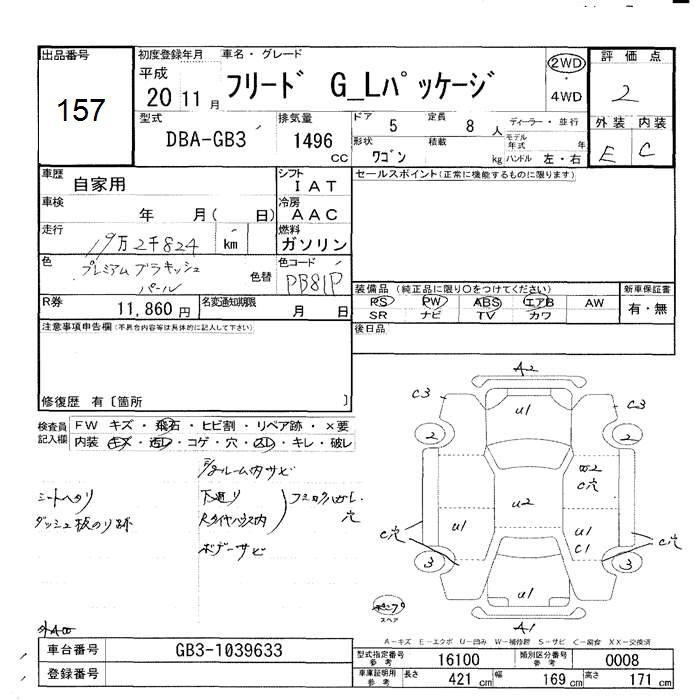 出品番号
157
初度登録年月
平成
20 11 月
車名・グレード
フリード G_Lパッケージ
2WD
・
4WD
評価点
2
外装 内装
E C
型式
DBA-GB3
排気量
1496
CC
ドア
5
定員
8 人
ディーラー・並行
形状
ワゴン
積載
kg
モデル
年式
年
ハンドル 左・右
車歴
自家用
シフト
I AT
冷房
AAC
燃料
ガソリン
車検
年 月( 日)
走行
19万2千824
km
色
プレミアム ブラキッシュ
パール
色替
色コード
PB81P
R券
11,860 円
名変通知期限
月 日
セールスポイント(正常に機能するものに限ります)
装備品 (純正品に限り〇をつけてください)
PS PW ABS エアB AW
SR ナビ TV カワ
新車保証書
有・無
後日品
注意事項申告欄(不具合内容等は具体的に記入して下さい)
修復歴 有〔箇所 〕
検査員
記入欄
FW キズ・飛石・ヒビ割・リペア跡・×要
内装・キズ・汚レ・コゲ・穴・スレ・キレ・破レ
ルーム内サビ
シートヘタリ
ダッシュ板のり跡
下廻り
Rタイヤハウス内
穴
ボデーサビ
A2
C3
C3
U1
2
2
W2
C穴
U2
U1
U1
C1
C穴
C穴
3
3
U1
スペア
A1
A-キズ E-エクボ U-凹み W-補修跡 S-サビ C-腐食 XX-交換済
車台番号
GB3-1039633
登録番号
型式指定番号
参考
16100
類別区分番号
参考
0008
車庫証明用
参考
長さ
421 cm
幅
169 cm
高さ
171 cm